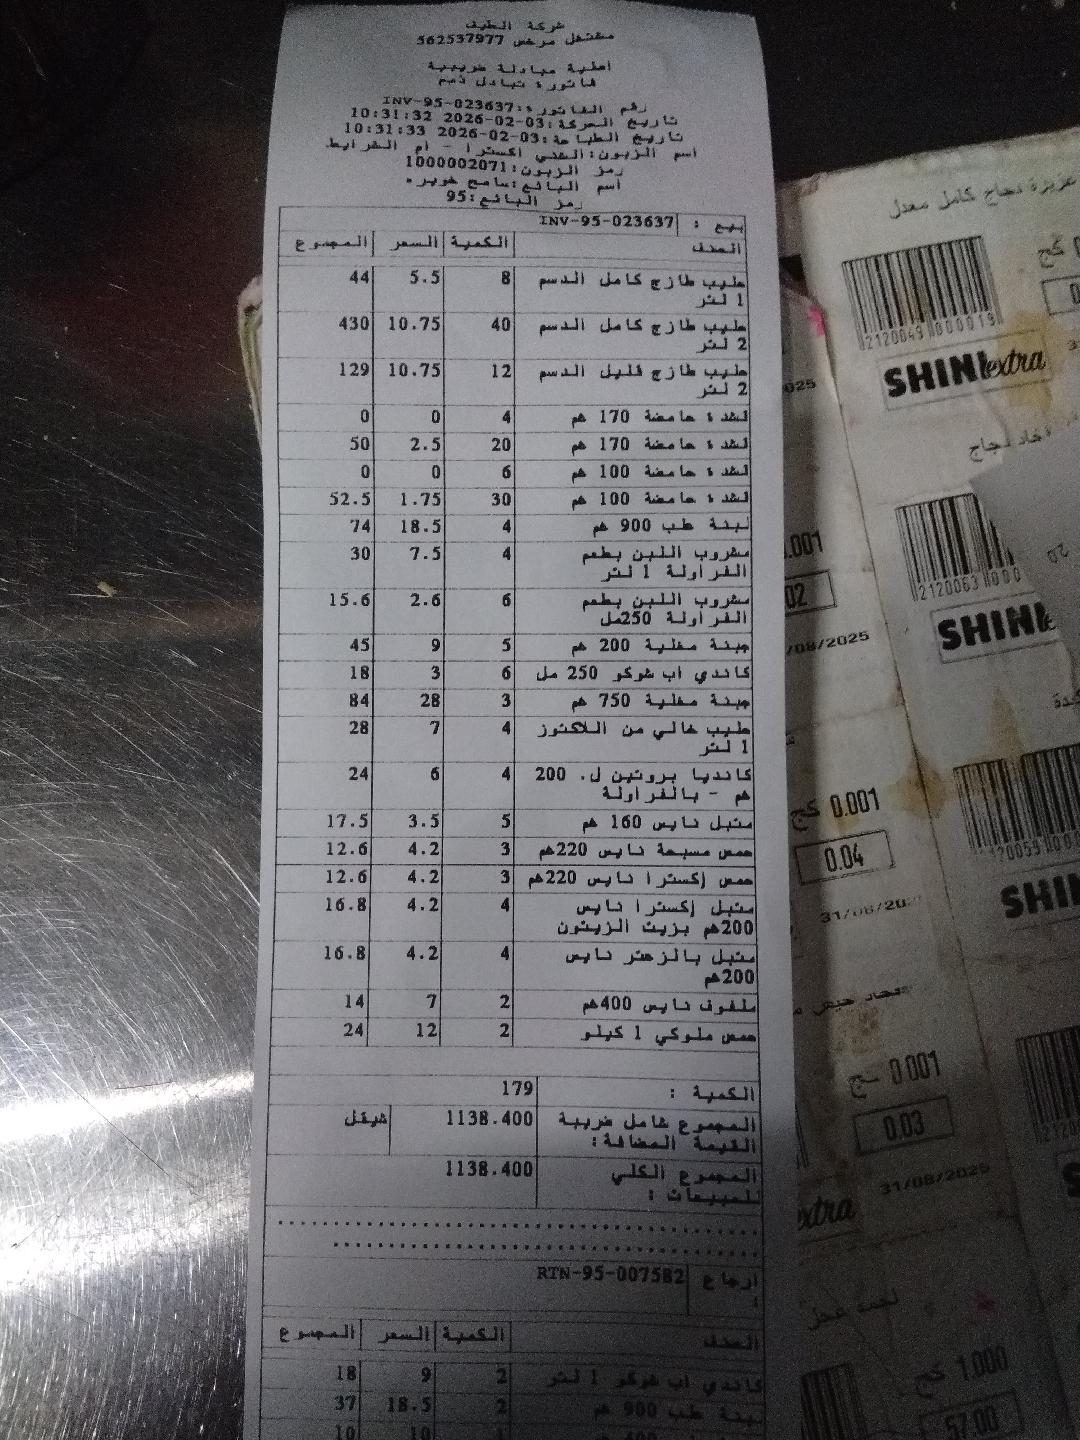 شركة الطيف
مشتغل مرخص 562537977
أصلية مبادلة ضريبية
فاتورة تبادل ذمم
رقم الفاتورة:INV-95-023637
تاريخ الحركة:2026-02-03 10:31:32
تاريخ الطباعة:2026-02-03 10:31:33
اسم الزبون:الشني اكسترا - ام الشرايط
رمز الزبون:1000002071
اسم البائع:سامح خويره
رمز البائع:95
بيع : INV-95-023637
الصنف الكمية السعر المجموع
حليب طازج كامل الدسم 8 5.5 44
1 لتر
حليب طازج كامل الدسم 40 10.75 430
2 لتر
حليب طازج قليل الدسم 12 10.75 129
2 لتر
قشدة حامضة 170 غم 4 0 0
قشدة حامضة 170 غم 20 2.5 50
قشدة حامضة 100 غم 6 0 0
قشدة حامضة 100 غم 30 1.75 52.5
لبنة طب 900 غم 4 18.5 74
مشروب اللبن بطعم 4 7.5 30
الفراولة 1 لتر
مشروب اللبن بطعم 6 2.6 15.6
الفراولة 250مل
جبنة مغلية 200 غم 5 9 45
كاندي اب شوكو 250 مل 6 3 18
جبنة مغلية 750 غم 3 28 84
حليب خالي من اللاكتوز 4 7 28
1 لتر
كانديا بروتين ل. 200 4 6 24
غم - بالفراولة
متبل نايس 160 غم 5 3.5 17.5
حمص مسبحة نايس 220غم 3 4.2 12.6
حمص إكسترا نايس 220غم 3 4.2 12.6
متبل إكسترا نايس 4 4.2 16.8
200غم بزيت الزيتون
متبل بالزعتر نايس 4 4.2 16.8
200غم
ملفوف نايس 400غم 2 7 14
حمص ملوكي 1 كيلو 2 12 24
الكمية : 179
المجموع شامل ضريبة 1138.400 شيقل
القيمة المضافة:
المجموع الكلي 1138.400
للمبيعات :
ارجاع RTN-95-007582
:
الصنف الكمية السعر المجموع
كاندي اب شوكو 1 لتر 2 9 18
لبنة طب 900 غم 2 18.5 37
400 غم 1 10 10
عزيزة دجاج كامل معدل
كج
2120049 000019
SHINI extra
دجاج
2120063 000
SHINI
0.001
02
/08/2025
0.001 كج
0.04
SHINI
31/08/202
0.001
0.03
31/08/2025
extra
لحمة عجل
1.000 كج
57.00